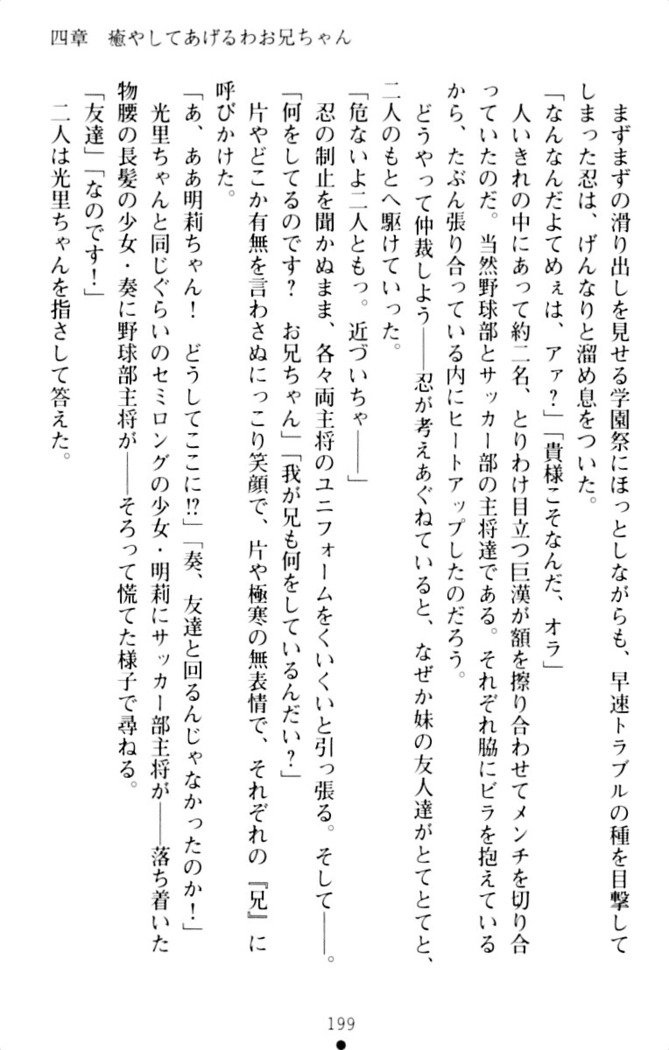 四章　癒やしてあげるわお兄ちゃん
　まずまずの滑り出しを見せる学園祭にほっとしながらも、早速トラブルの種を目撃して
しまった忍は、げんなりと溜め息をついた。
「なんなんだよてめぇは、アァ？」「貴様こそなんだ、オラ」
　人いきれの中にあって約二名、とりわけ目立つ巨漢が額を擦り合わせてメンチを切り合
っていたのだ。当然野球部とサッカー部の主将達である。それぞれ脇にビラを抱えている
から、たぶん張り合っている内にヒートアップしたのだろう。
　どうやって仲裁しよう――忍が考えあぐねていると、なぜか妹の友人達がとてとてと、
二人のもとへ駆けていった。
「危ないよ二人ともっ。近づいちゃ――」
　忍の制止を聞かぬまま、各々両主将のユニフォームをくいくいと引っ張る。そして――。
「何をしてるのです？　お兄ちゃん」「我が兄も何をしているんだい？」
　片やどこか有無を言わさぬにっこり笑顔で、片や極寒の無表情で、それぞれの『兄』に
呼びかけた。
「あ、ああ明莉ちゃん！　どうしてここに!?」「奏、友達と回るんじゃなかったのか！」
　光里ちゃんと同じぐらいのセミロングの少女・明莉にサッカー部主将が――落ち着いた
物腰の長髪の少女・奏に野球部主将が――そろって慌てた様子で尋ねる。
「友達」「なのです！」
　二人は光里ちゃんを指さして答えた。
199